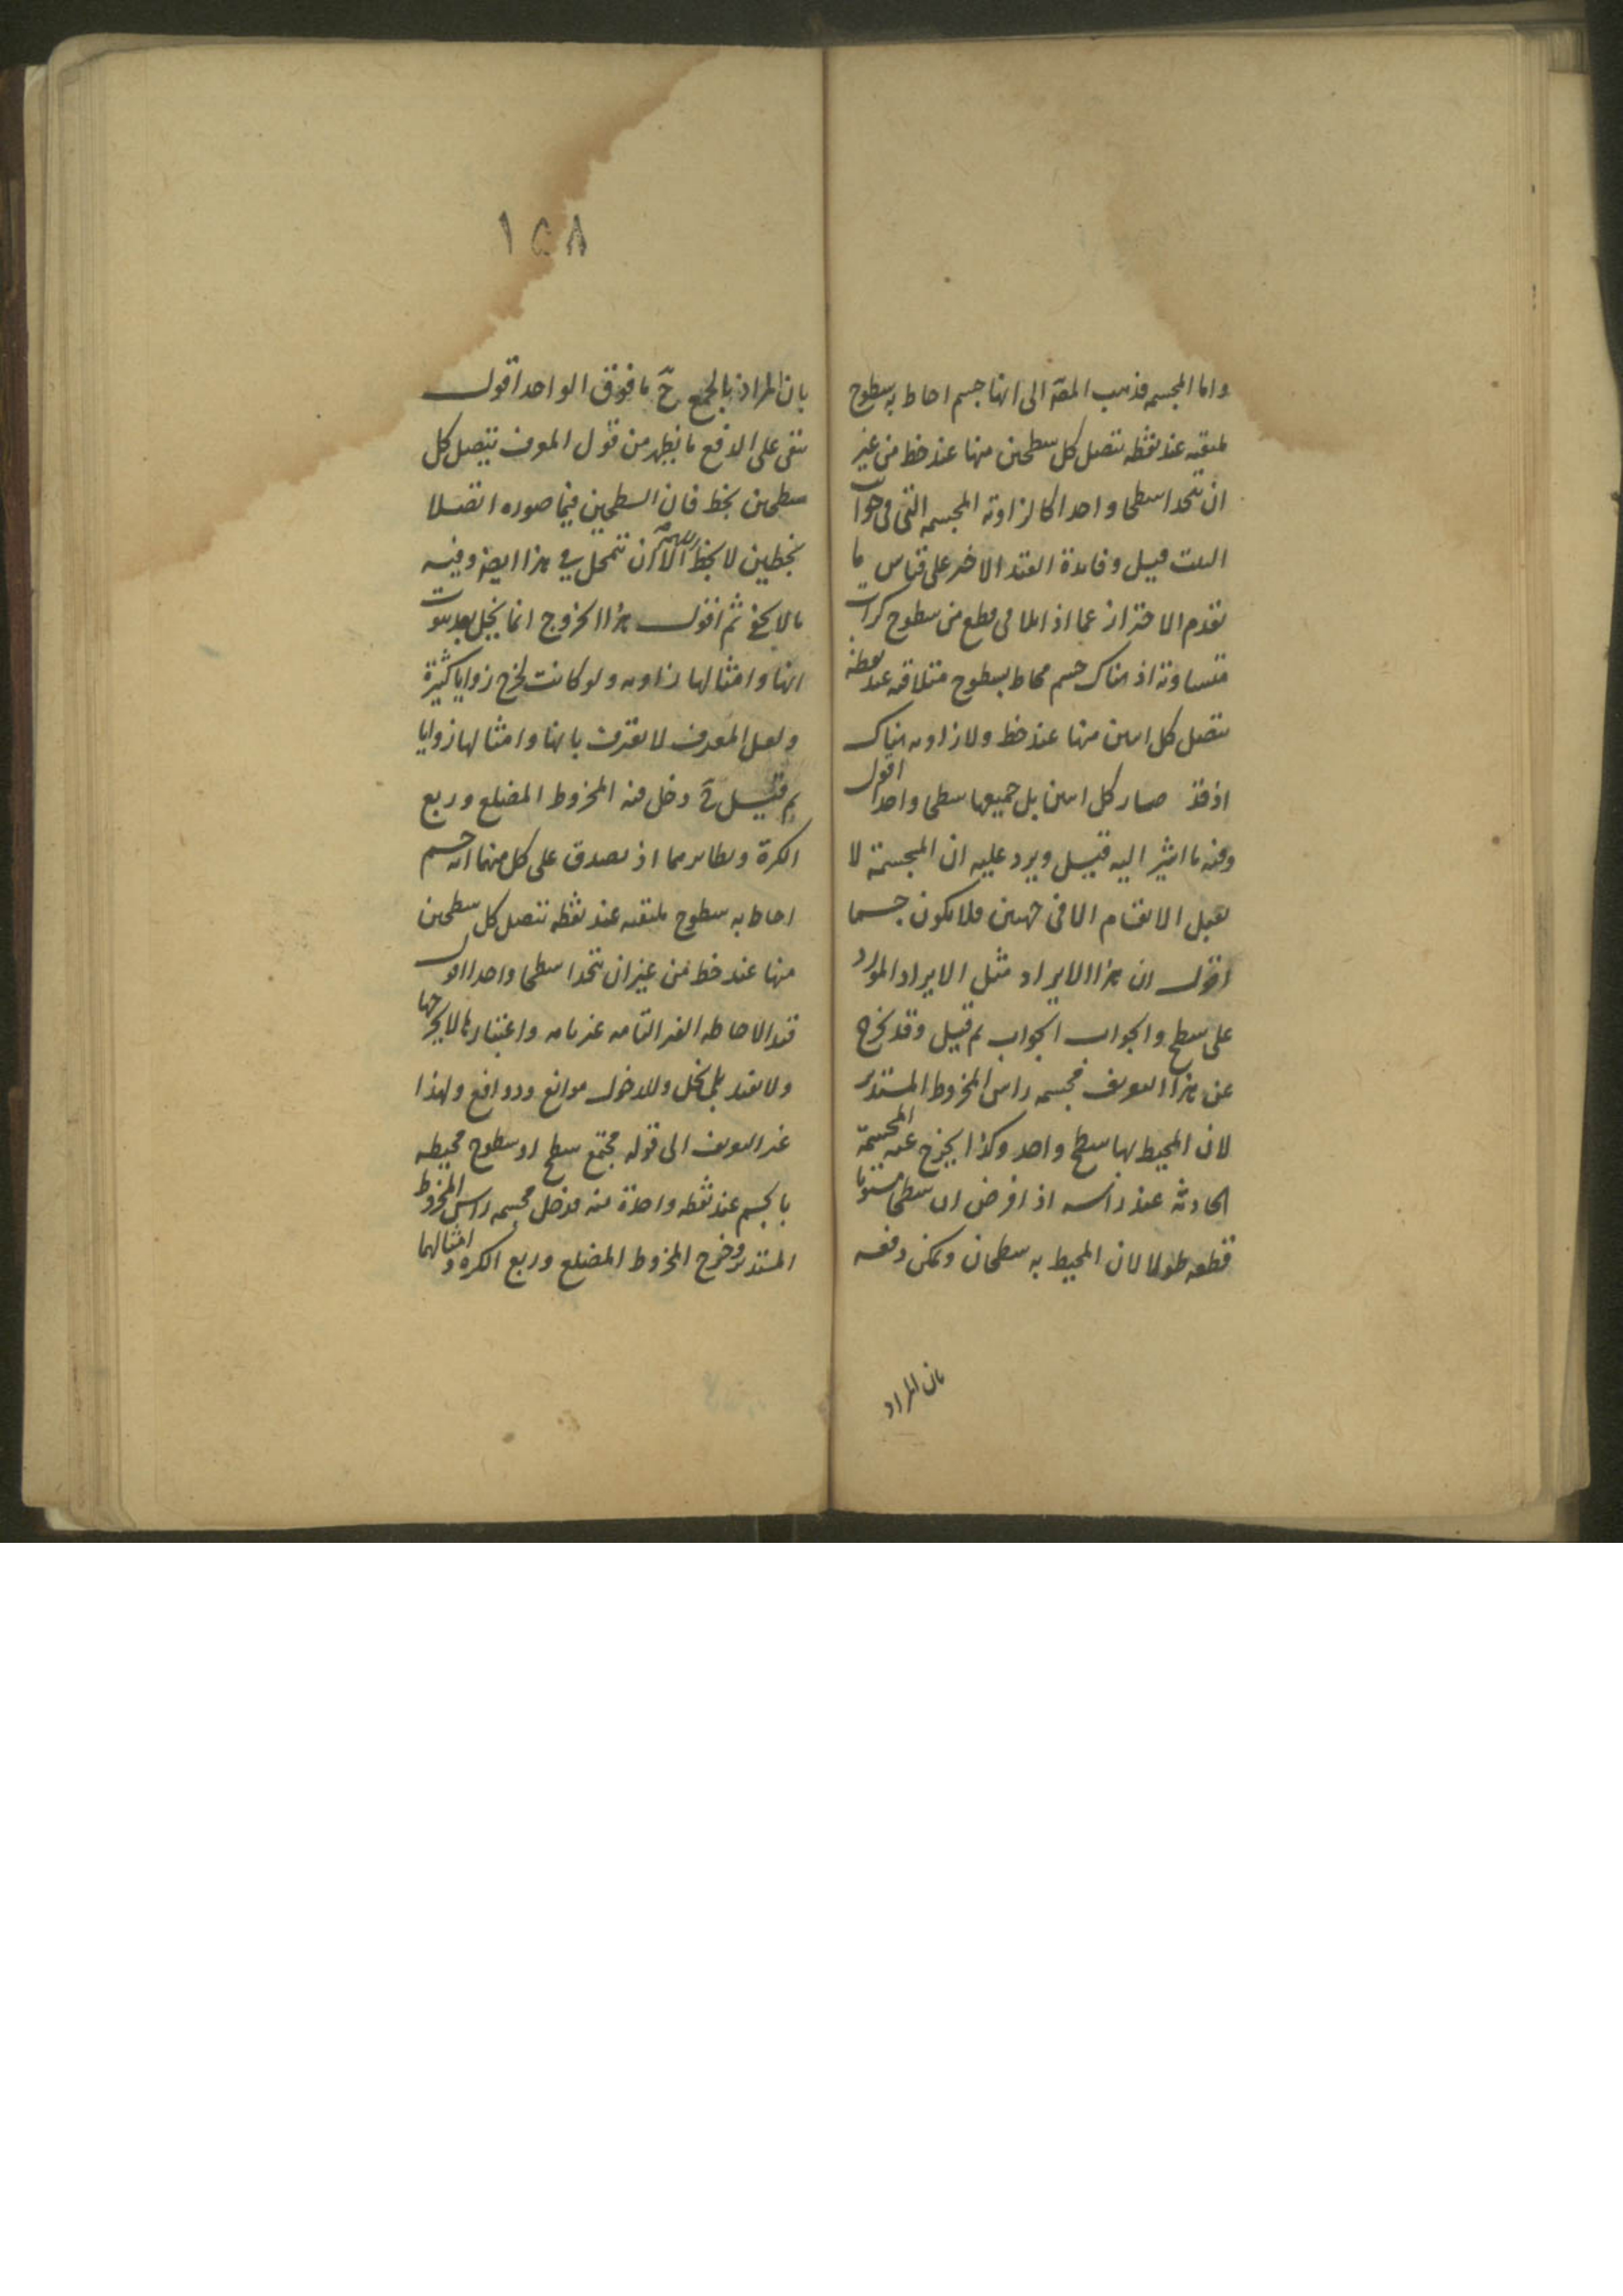 واما المجسمة فذهب المصـ الى انها جسم احاط به سطوح
ملتقية عند نقطة يتصل كل سطحين منها عند خط من غير
ان يتحدا سطحا واحدا كالزاوية المجسمة التى فى جوانب
البيت قيل وفائدة القيد الاخر على قياس ما
تقدم الاحتراز عما اذا تلاقى قطع من سطوح كرات
متساوية اذ هناك جسم محاط بسطوح متلاقية عند نقطة
يتصل كل اثنين منها عند خط ولا زاوية هناك
اذ قد صار كل اثنين بل جميعها سطحا واحدا اقول
وفيه ما اشير اليه قيل ويرد عليه ان المجسمة لا
تقبل الانقسام الا فى جهتين فلا تكون جسما
اقول ان هذا الايراد مثل الايراد المورد
على سطح والجواب الجواب ثم قيل وقد يخرج
عن هذا التعريف مجسمة راس المخروط المستدير
لان المحيط بها سطح واحد وكذا يخرج عنه المجسمة
الحادثة عند راسه اذا فرض ان سطحا مستويا
قطعه طولا لان المحيط به سطحان ويمكن دفعه
بان المراد
١٥٨
بان المراد بالجمع ح ما فوق الواحد اقول
بقى على الدفع ما يظهر من قول المعرف يتصل كل
سطحين بخط فان السطحين فيما صوره اتصلا
بخطين لا بخط اللهم الا ان يتمحل فى هذا ايضا وفيه
ما لا يخفى ثم اقول هذا الخروج انما يخل بعد ثبوت
انها وامثالها زاوية ولو كانت لخرج زوايا كثيرة
ولعل المعرف لا يعترف بانها وامثالها زوايا
ثم قيل دخل فيه المخروط المضلع وربع
الكرة ونظايرهما اذ يصدق على كل منهما انه جسم
احاط به سطوح ملتقية عند نقطة يتصل كل سطحين
منها عند خط من غير ان يتحدا سطحا واحدا اقول
قيد الاحاطة الغير التامة غير تامة واعتبارها لا يخرجها
ولا يفيد بل يخل وللدخول موانع ودوافع ولهذا
غير التعريف الى قوله مجتمع سطح او سطوح محيطة
بالجسم عند نقطة واحدة منه فدخل مجسمة راس المخروط
المستدير وخرج المخروط المضلع وربع الكرة وامثالهما